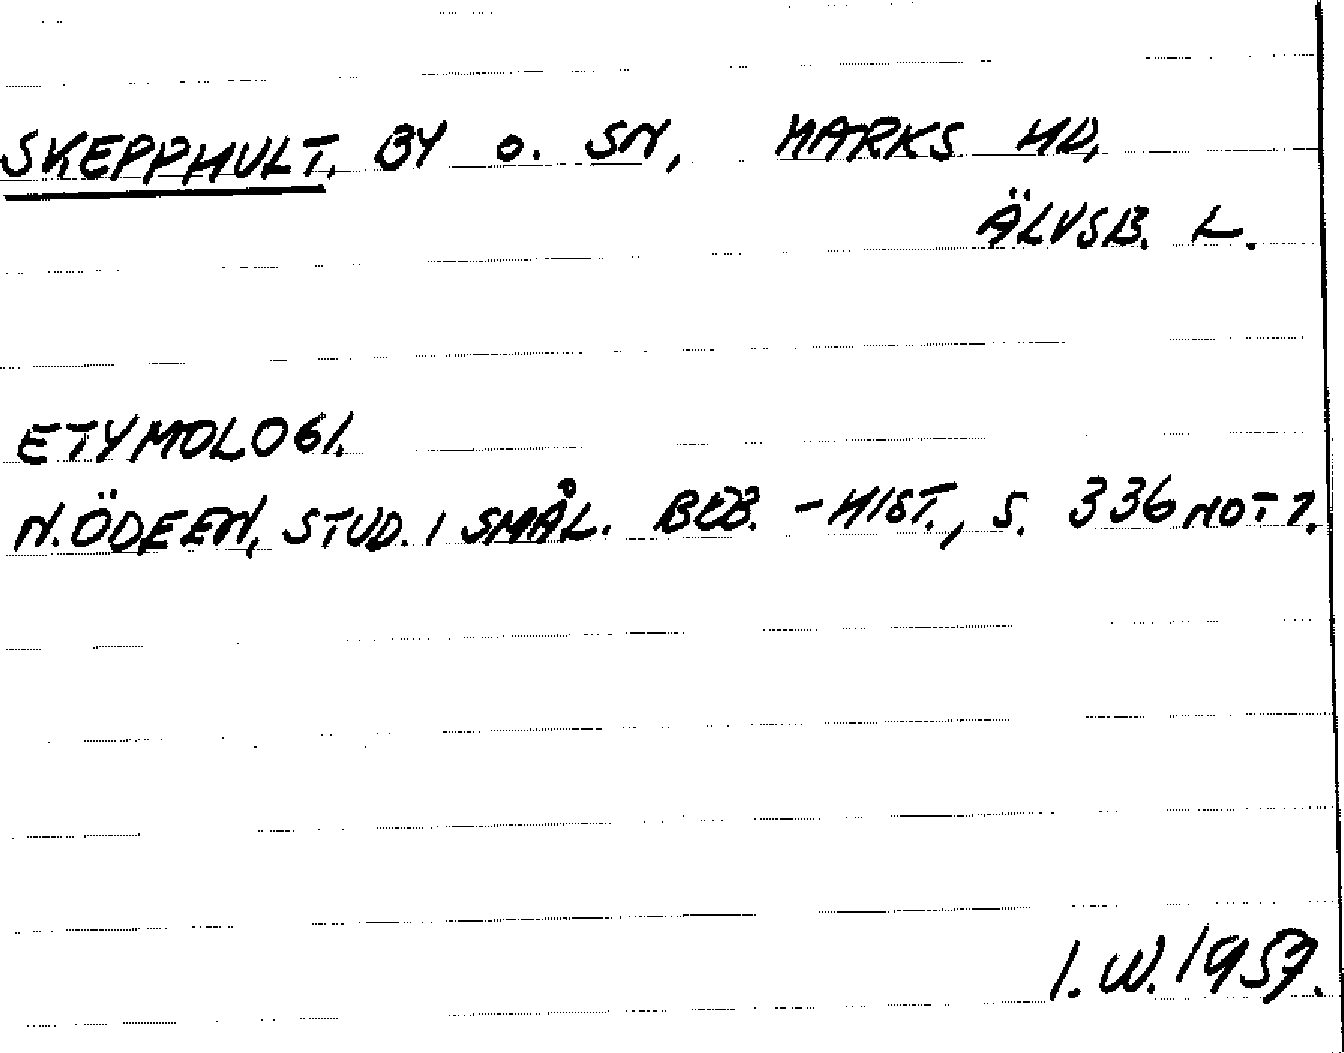 SKEPPHULT. BY o. SN, MARKS HD,
ÄLVSB. L.
ETYMOLOGI.
N. ÖDEEN, STUD. I SMÅL. BEB. -HIST., S. 336 NOT 7.
I. W. 1957.